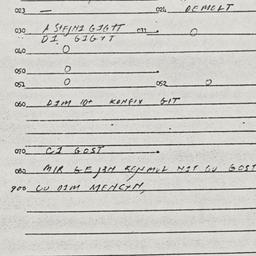 023 — 024 DEMELT
030 A STEJNI GIGTT 031 O
DI GIGYT
040 O
050 O
051 O 052 O
060 DIM IDT KONFIX GIT
070 CI GOST
080 MIR GEJAN NIT CU GOST
900 CU DIM MENCYN,